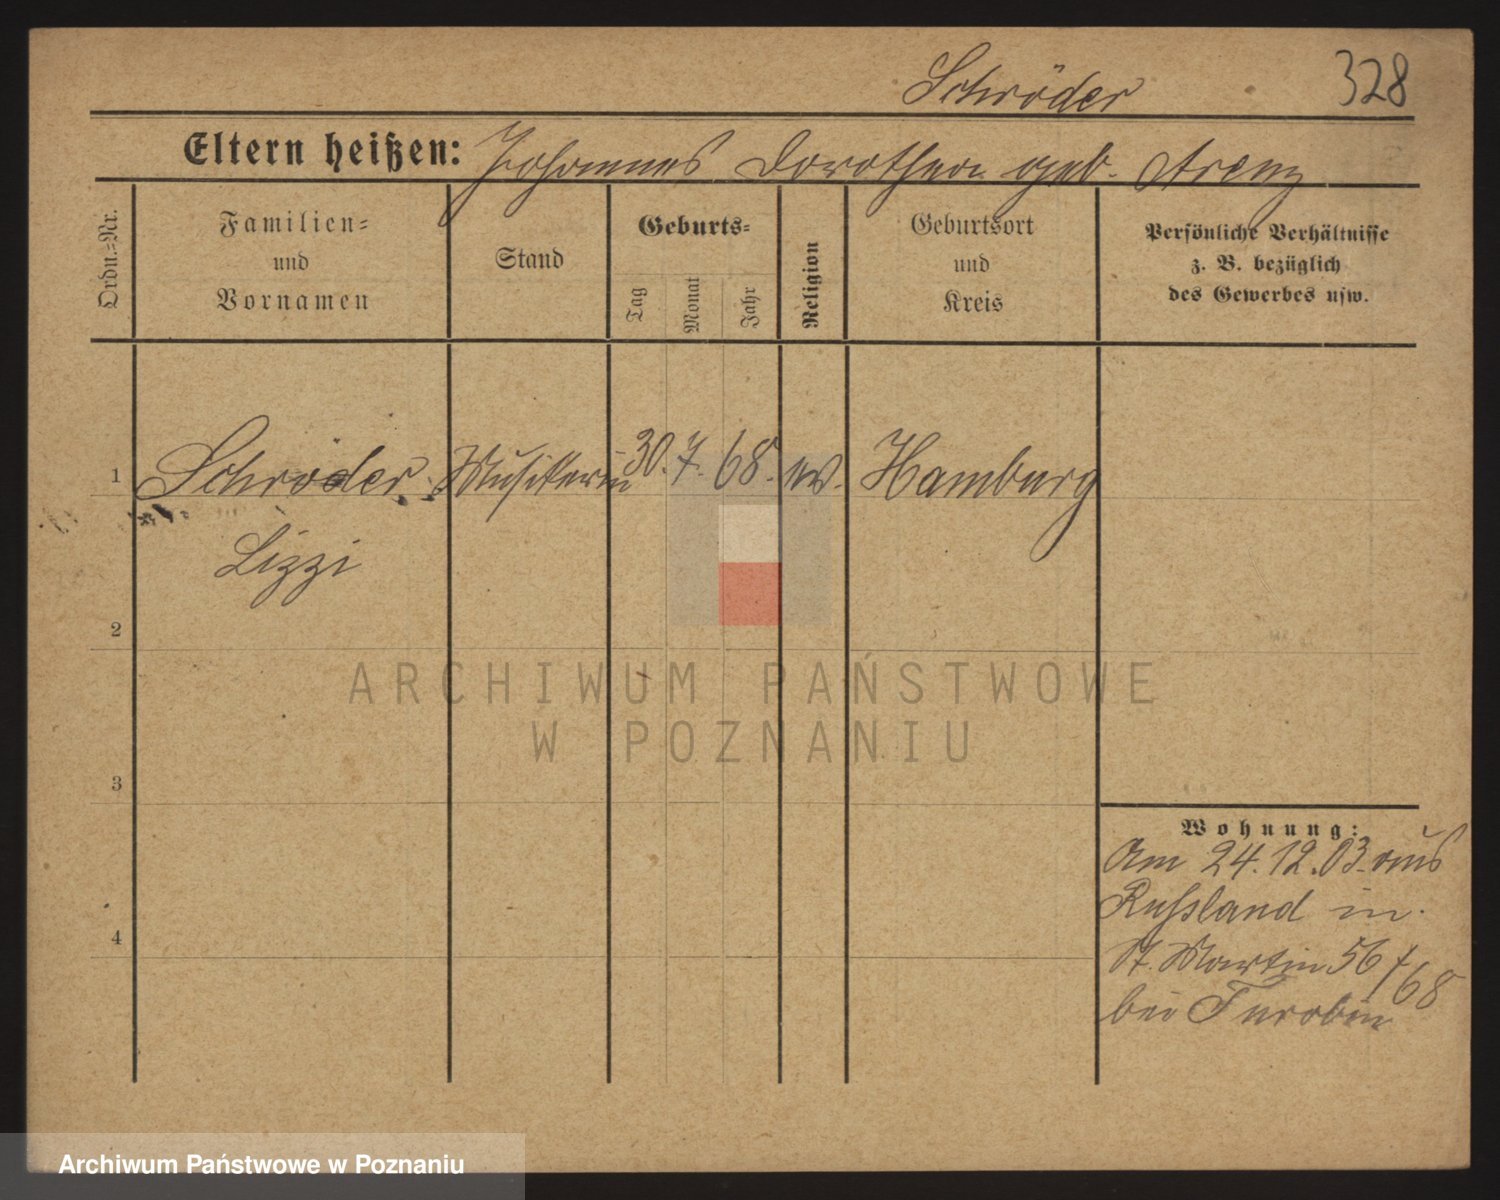 Schröder 328
Eltern heißen: Johannes Dorothea geb. Arenz
Ordn.=Nr.
Familien=
und
Vornamen
Stand
Geburts=
Tag
Monat
Jahr
Religion
Geburtsort
und
Kreis
Persönliche Verhältnisse
z. B. bezüglich
des Gewerbes usw.
1 Schröder Musikerin 30. 7. 68. ev. Hamburg
Lizzi
2
3
4
Wohnung:
Am 24.12.03. aus
Russland in
St. Martin 56/68
bei Turobin
ARCHIWUM PAŃSTWOWE
W POZNANIU
Archiwum Państwowe w Poznaniu